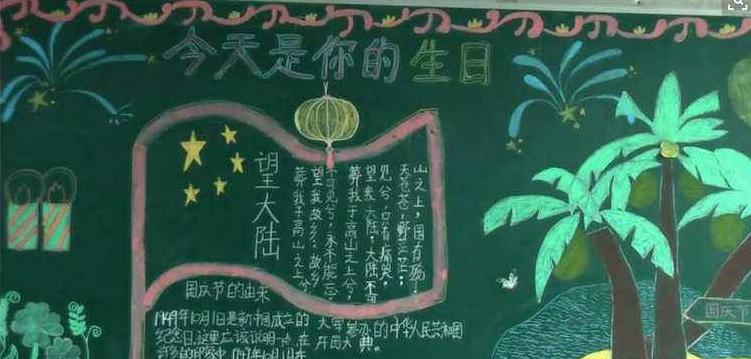 今天是你的生日
望大陆
葬我于高山之上兮,
望我故乡;故乡
不可见兮,永不能忘
葬我于高山之上兮,
望我大陆,大陆不可
见兮,只有痛哭。
天苍苍,野茫茫;
山之上,国有殇。
国庆节的由来
1949年10月1日是新中国成立的
纪念日。这里应该说明一点,在
的印象中,1949年10月1日在
举办的中华人民共和国
开国大典。
国庆节